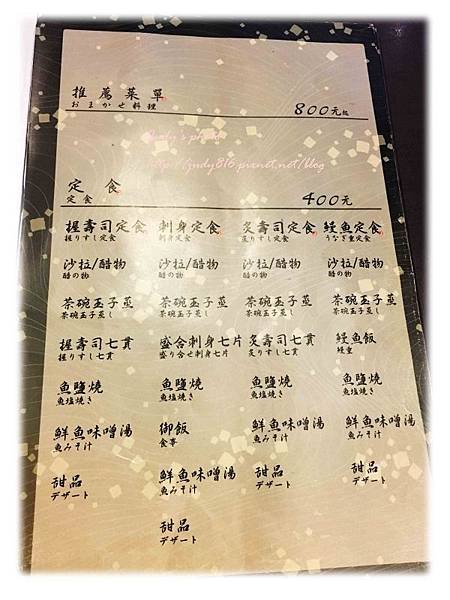 推薦菜單
おまかせ料理
800元起
Judy's photo
http://judy816.pixnet.net/blog
定食
定食
400元
握壽司定食 刺身定食 炙壽司定食 鰻魚定食
握りすし定食 刺身定食 炙りすし定食 うなぎ重定食
沙拉/醋物 沙拉/醋物 沙拉/醋物 沙拉/醋物
酢の物 酢の物 酢の物 酢の物
茶碗玉子蒸 茶碗玉子蒸 茶碗玉子蒸 茶碗玉子蒸
茶碗玉子蒸し 茶碗玉子蒸し 茶碗玉子蒸し 茶碗玉子蒸し
握壽司七貫 盛合刺身七片 炙壽司七貫 鰻魚飯
握りすし七貫 盛り合せ刺身七片 炙りすし七貫 鰻重
魚鹽燒 魚鹽燒 魚鹽燒 魚鹽燒
魚塩焼き 魚塩焼き 魚塩焼き 魚塩焼き
鮮魚味噌湯 御飯 鮮魚味噌湯 鮮魚味噌湯
魚みそ汁 食事 魚みそ汁 魚みそ汁
甜品 鮮魚味噌湯 甜品 甜品
デザート 魚みそ汁 デザート デザート
甜品
デザート